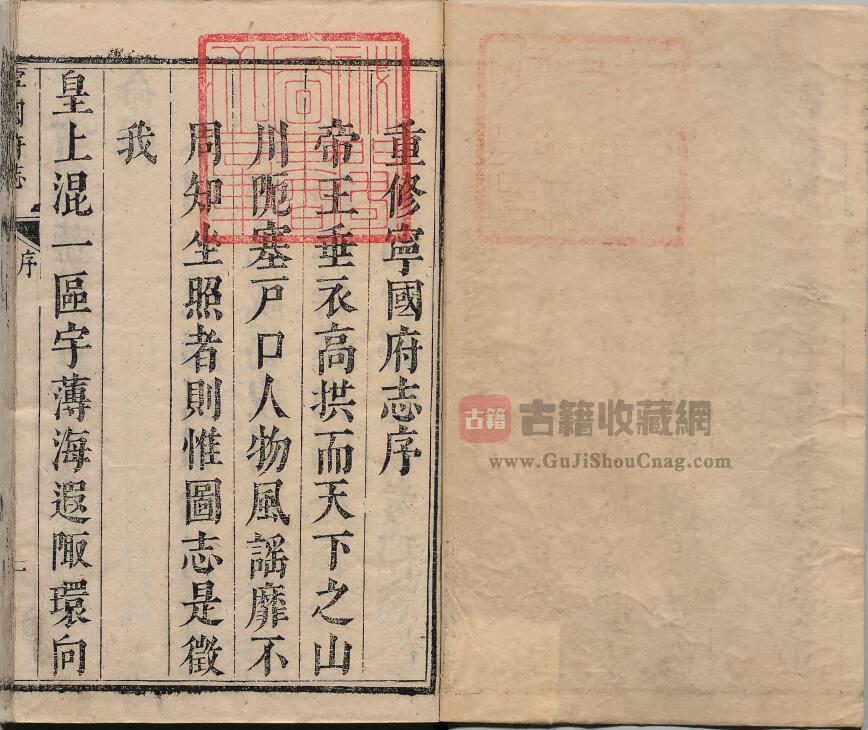 重修寧國府志序
帝王垂衣高拱而天下之山
川阨塞戸口人物風謡靡不
周知坐照者則惟圖志是徵
我
皇上混一區宇薄海遐陬環向
寧國府志
序
一
古籍
古籍收藏網
www.GuJiShouCnag.com